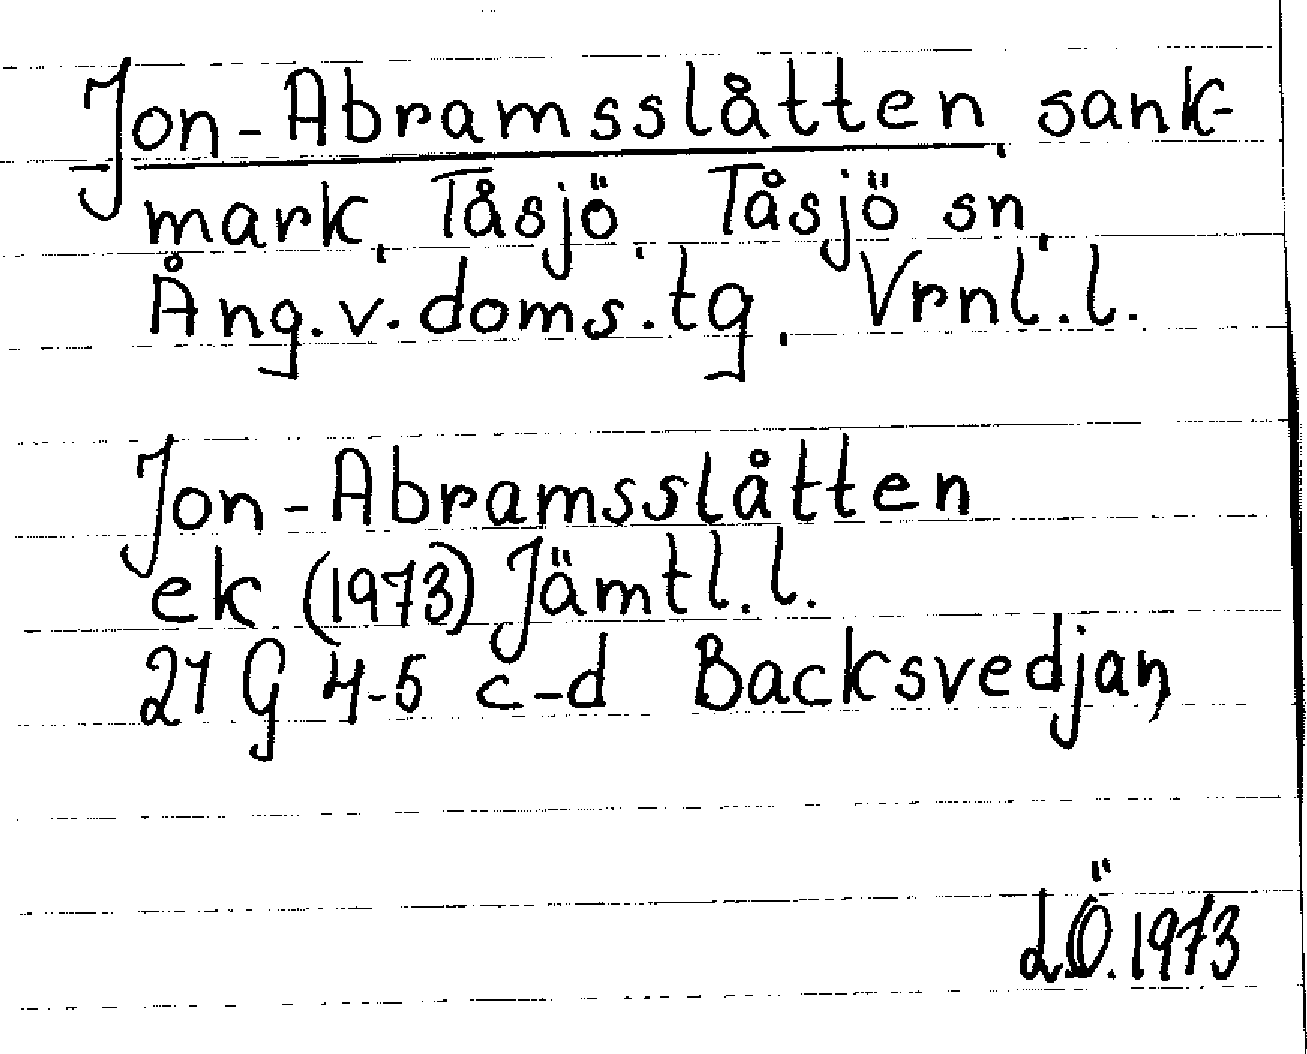 Jon-Abramsslåtten, sank-
mark, Tåsjö, Tåsjö sn,
Ång.v.doms.tg, Vrnl.l.
Jon-Abramsslåtten
ek (1973) Jämtl.l.
21 G 4-5 c-d Backsvedjan,
L.Ö.1973